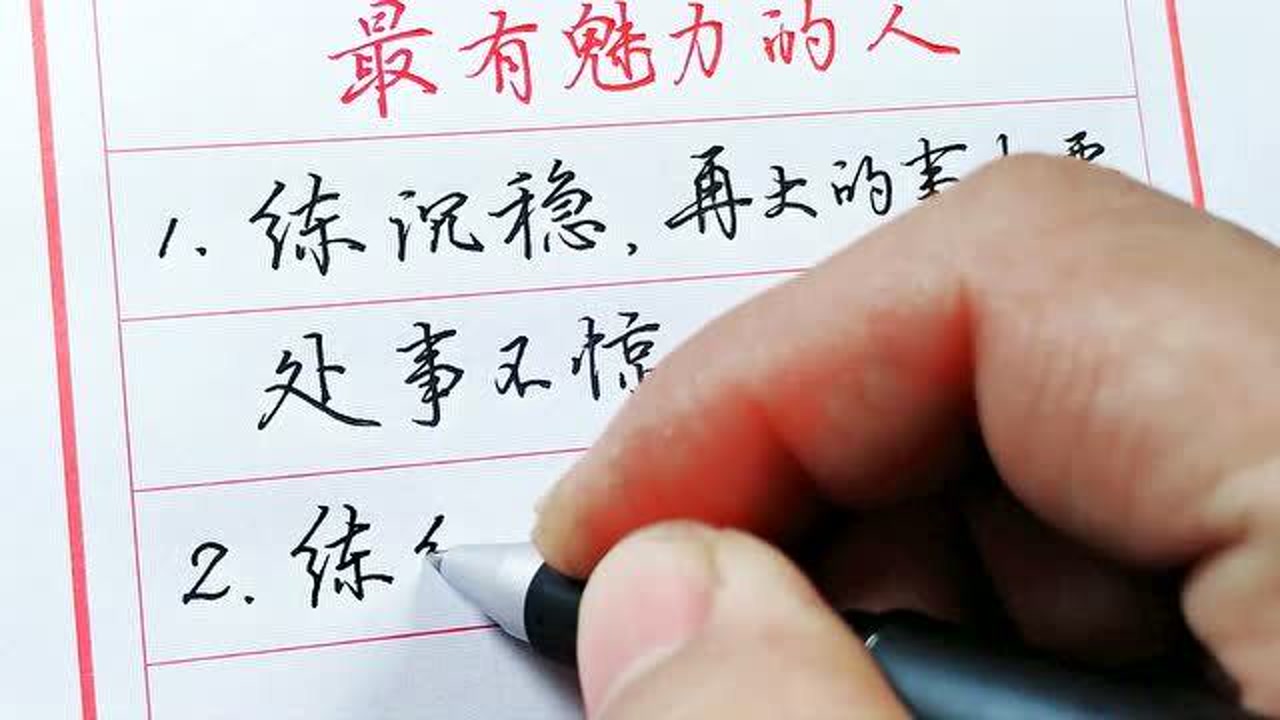 最有魅力的人
1. 练沉稳,再大的事
处事不惊
2. 练